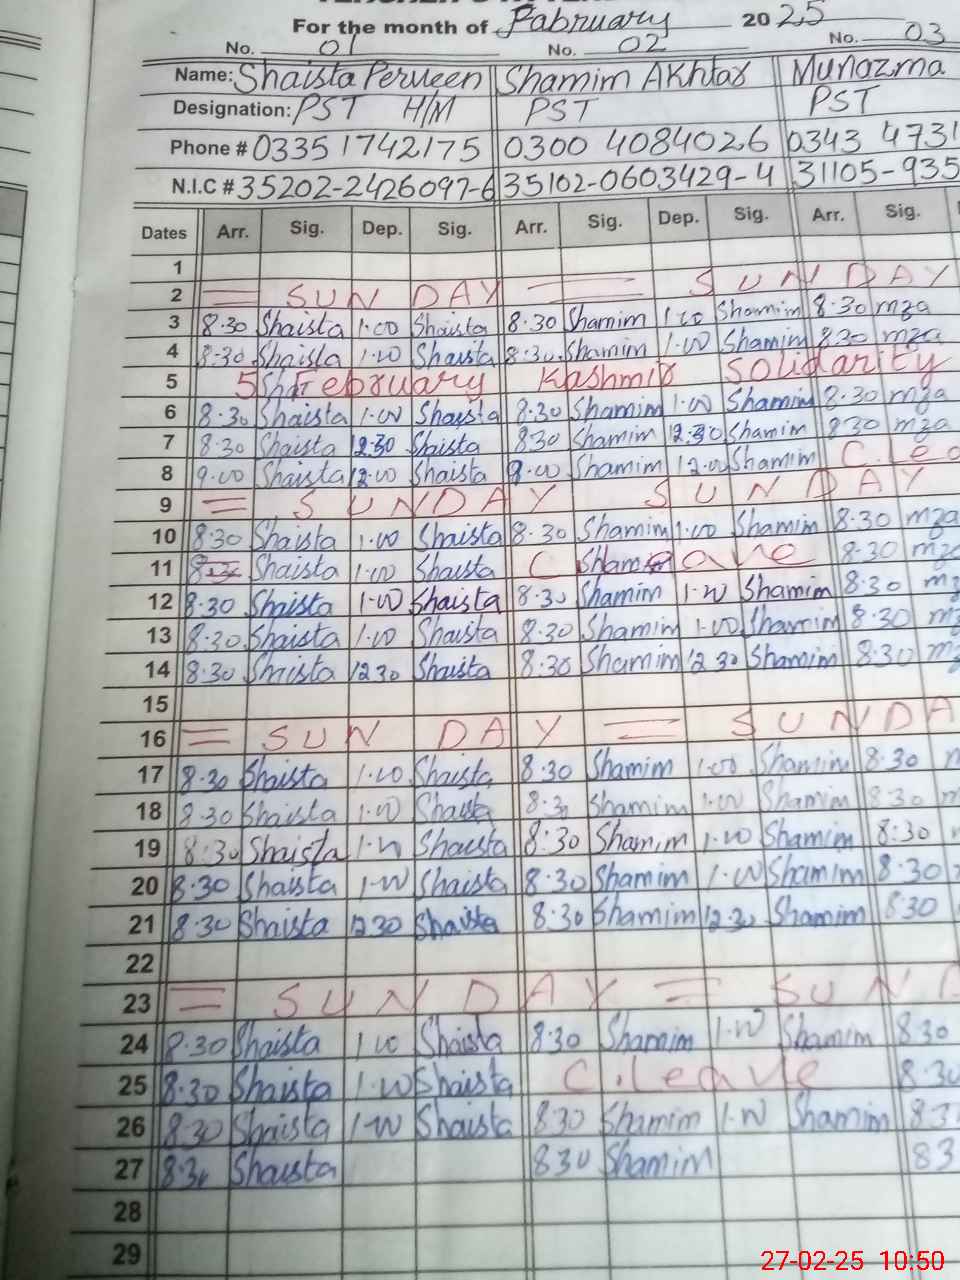 For the month of Pabruary 2025
No. 01 No. 02 No. 03
Name: Shaista Perveen Shamim Akhtar Munazma
Designation: PST H/M PST PST
Phone # 03351742175 0300 4084026 0343 4731
N.I.C # 35202-2426097-6 35102-0603429-4 31105-935
Dates Arr. Sig. Dep. Sig. Arr. Sig. Dep. Sig. Arr. Sig.
1
2 = SUNDAY = SUNDAY
3 8.30 Shaista 1.00 Shaista 8.30 Shamim 1.00 Shamim 8.30 mza
4 8.30 Shaista 1.00 Shaista 8.30 Shamim 1.00 Shamim 8.30 mza
5 5th February Kashmir Solidarity
6 8.30 Shaista 1.00 Shaysta 8.30 Shamim 1.00 Shamim 8.30 mza
7 8.30 Shaista 12.30 Shaista 830 Shamim 12.30 Shamim 830 mza
8 9.00 Shaista 12.00 Shaista 9.00 Shamim 12.00 Shamim C.lea
9 = SUNDAY SUNDAY
10 8.30 Shaista 1.00 Shaista 8.30 Shamim 1.00 Shamim 8.30 mza
11 Shaista 1.00 Shaista C Sham eave 8.30 mza
12 8.30 Shaista 1.00 Shaista 8.30 Shamim 1.00 Shamim 8.30 m
13 8.30 Shaista 1.00 Shaista 8.30 Shamim 1.00 Shamim 8.30 m
14 8.30 Shaista 1230 Shaista 8.30 Shamim 12 30 Shamim 8.30 m
15
16 = SUNDAY = SUNDA
17 8.30 Shaista 1.00 Shaista 8.30 Shamim 1.00 Shamim 8.30
18 8.30 Shaista 1.00 Shaista 8.30 Shamim 1.00 Shamim 8.30
19 8:30 Shaista 1.00 Shaista 8:30 Shamim 1.00 Shamim 8:30
20 8.30 Shaista 1.00 Shaista 8.30 Shamim 1.00 Shamim 8.30
21 8.30 Shaista 1230 Shaista 8.30 Shamim 12.30 Shamim 830
22
23 = SUNDAY = SUN
24 8.30 Shaista 1.00 Shaista 8.30 Shamim 1.00 Shamim 8.30
25 8.30 Shaista 1.00 Shaista C.leave 8.30
26 8.30 Shaista 1.00 Shaista 830 Shamim 1.00 Shamim 8.3
27 8.30 Shaista 830 Shamim 83
28
29
27-02-25 10:50